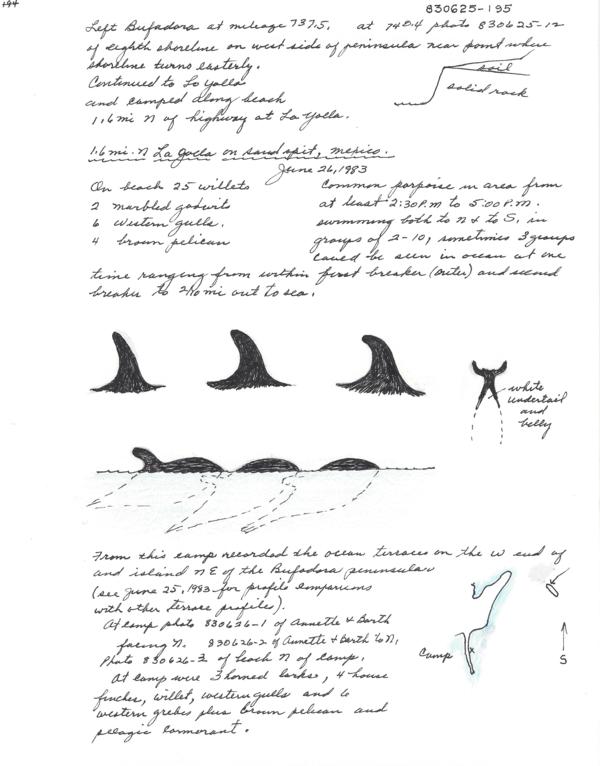 194
830625-195
Left Bufadora at mileage 737.5. at 740.4 photo 830625-12
of eighth shoreline on west side of peninsula near point where
shoreline turns easterly.
Continued to La Yolla
and camped along beach
1.6 mi N of highway at La Yolla.
soil
solid rock
1.6 mi. N La Jolla on sand spit, mexico.
June 26, 1983
On beach 25 willets
2 marbled godwits
6 western gulls.
4 brown pelican
Common porpoise in area from
at least 2:30 P.M to 5:00 P.M.
swimming both to N & to S, in
groups of 2-10, sometimes 3 groups
could be seen in ocean at one
time ranging from within first breaker (outer) and second
breaker to 2/10 mi out to sea.
white
undertail
and
belly
From this camp recorded the ocean terraces on the W end of
and island NE of the Bufadora peninsula
(see June 25, 1983 for profile comparisons
with other terrace profiles).
At camp photo 830626-1 of Annette & Barth
facing N. 830626-2 of Annette & Barth to N,
Photo 830626-3 of beach N of camp.
At camp were 3 horned larks, 4 house
finches, willet, western gulls and 6
western grebes plus brown pelican and
pelagic cormorant.
Camp
x
S